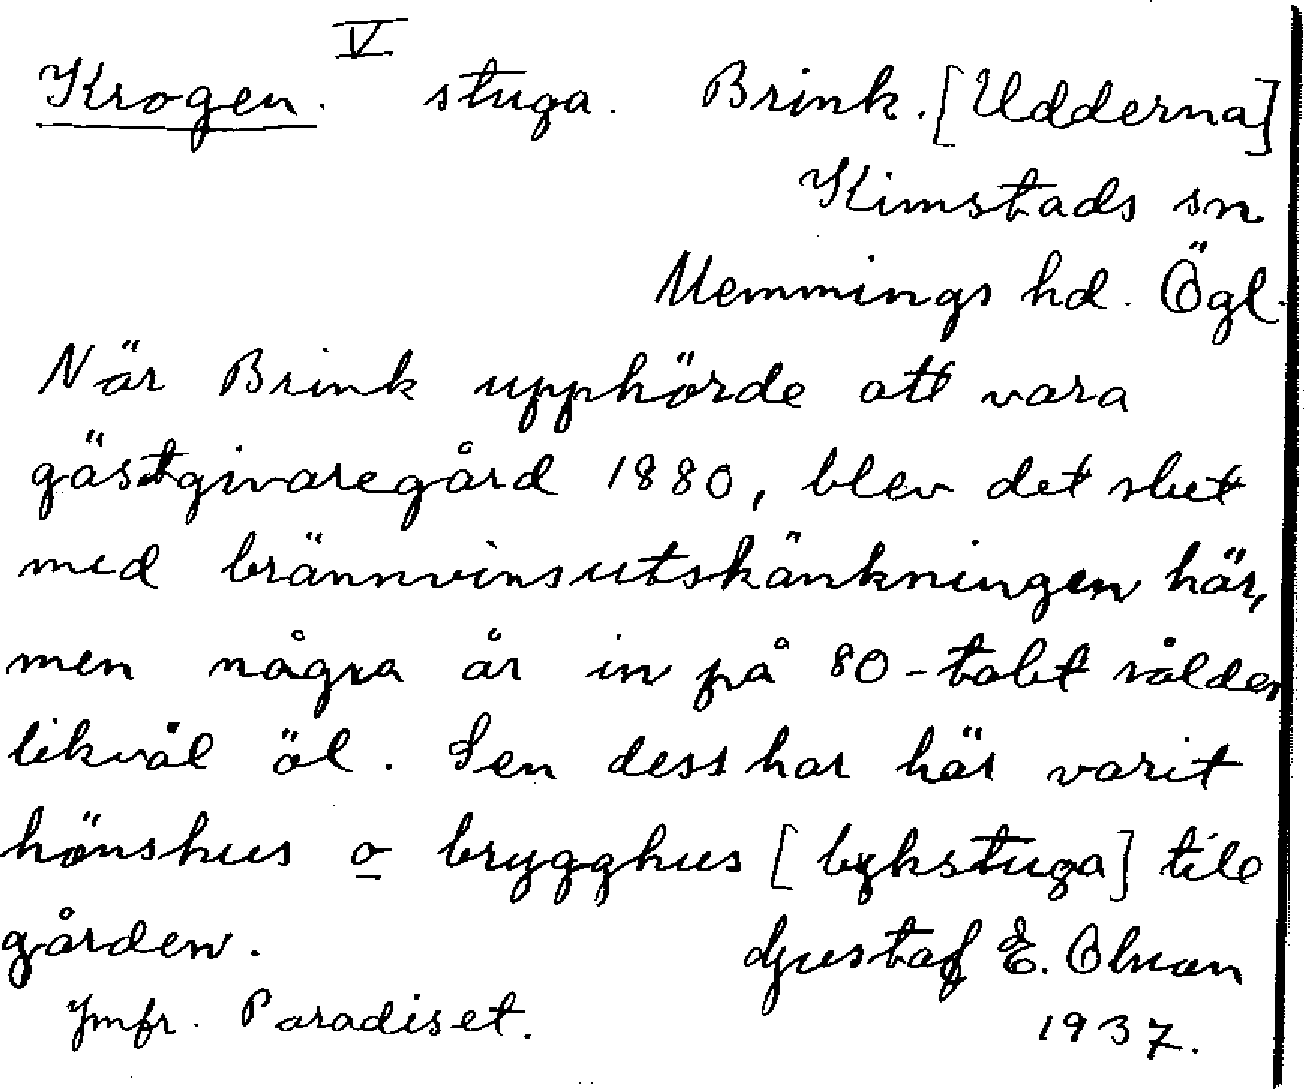 V
Krogen. stuga. Brink. [Udderna]
Kimstads sn
Memmings hd. Ögl.
När Brink upphörde att vara
gästgivaregård 1880, blev det slut
med brännvinsutskänkningen här,
men några år in på 80-talet såldes
likväl öl. Sen dess har här varit
hönshus o brygghus [bykstuga] till
gården.
Gustaf E. Olsson
Jmfr. Paradiset.
1937.